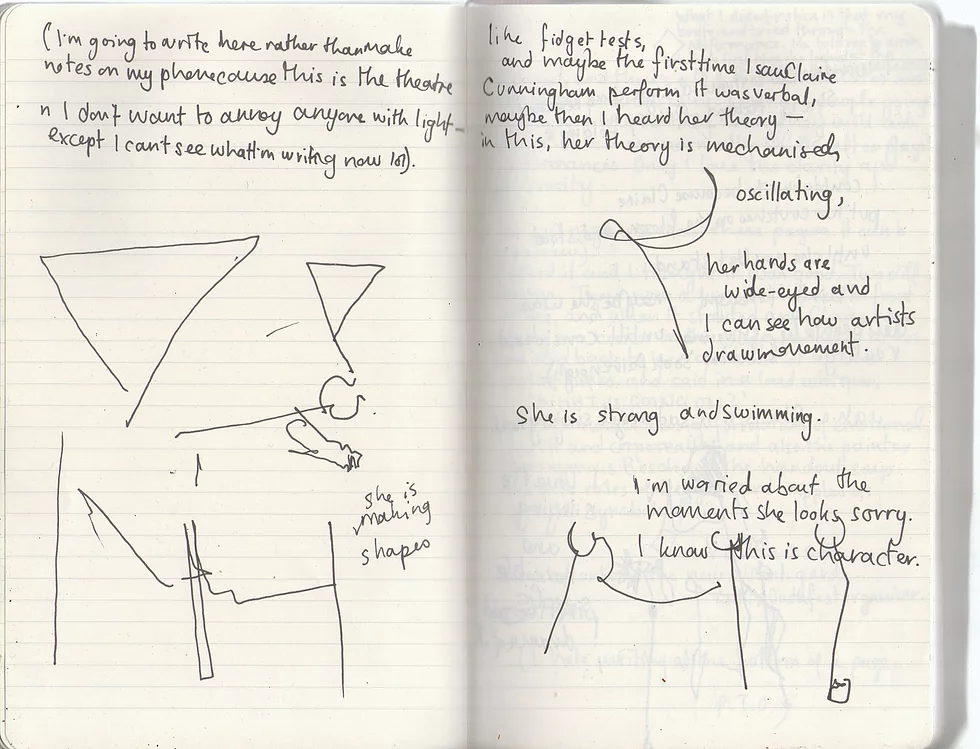 (I'm going to write here rather than make
notes on my phone cause this is the theatre
n I don't want to annoy anyone with light –
except I can't see what I'm writing now lol).
she is
making
shapes
like fidget tests,
and maybe the first time I saw Claire
Cunningham perform it was verbal,
maybe then I heard her theory —
in this, her theory is mechanised,
oscillating,
her hands are
wide-eyed and
I can see how artists
draw movement.
She is strong and swimming.
I'm worried about the
moments she looks sorry.
I know this is character.